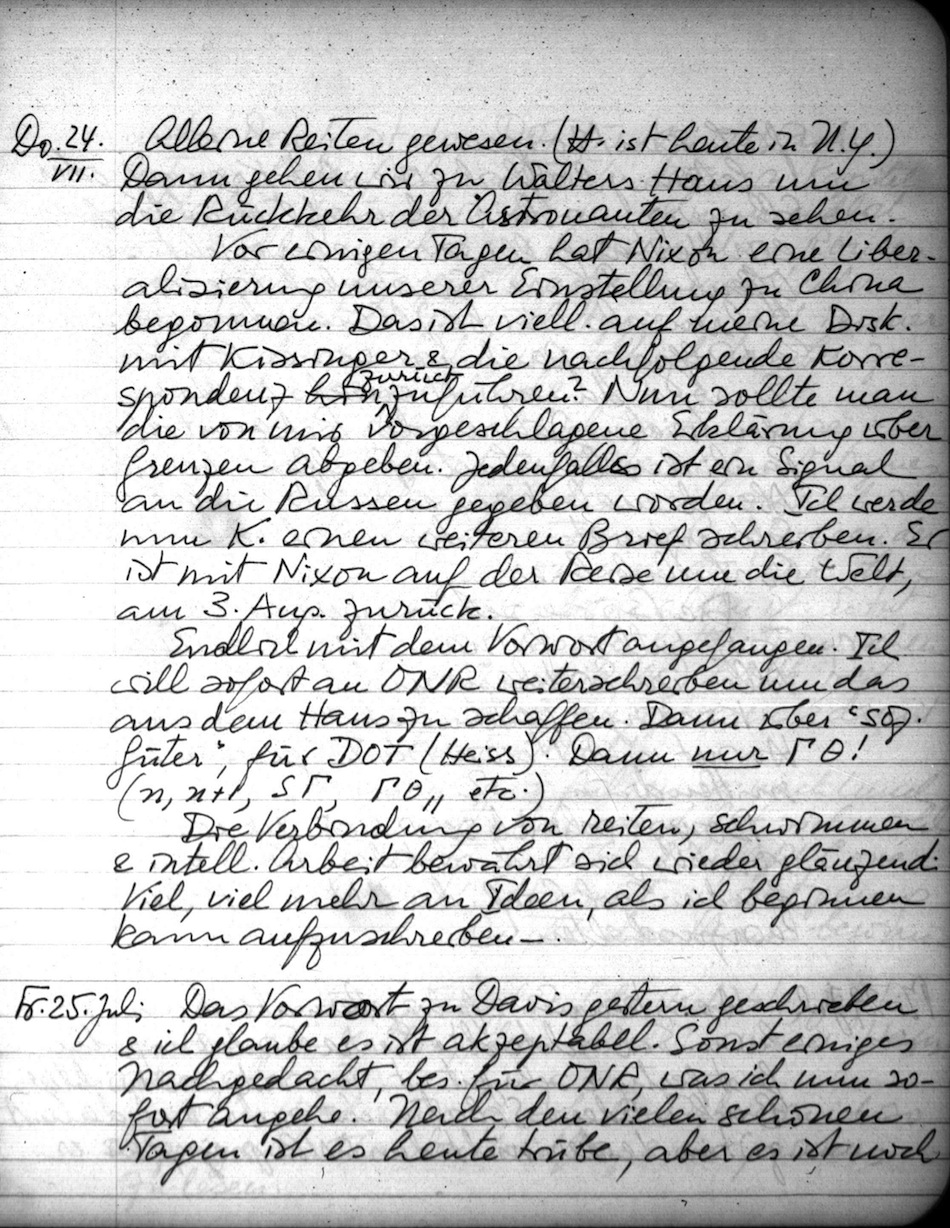 Do. 24. Alleine Reiten gewesen. (H. ist heute in N.Y.)
VII. Dann gehen wir zu Walters Haus um
die Rückkehr der Astronauten zu sehen.
Vor einigen Tagen hat Nixon eine Liber-
alisierung unserer Einstellung zu China
begonnen. Das ist viell. auf meine Disk.
mit Kissinger & die nachfolgende Korre-
spondenz zurückzuführen? Nun sollte man
die von mir vorgeschlagene Erklärung über
Grenzen abgeben. Jedenfalls ist ein Signal
an die Russen gegeben worden. Ich werde
nun K. einen weiteren Brief schreiben. Er
ist mit Nixon auf der Reise um die Welt,
am 3. Aug. zurück.
Endlich mit dem Vorwort angefangen. Ich
will sofort an ONR weiterschreiben um das
aus dem Haus zu schaffen. Dann über "soz.
Güter", für DOT (Heiss). Dann nur Γ Θ!
(n, n+1, SΓ, ΓΘ,, etc.)
Die Verbindung von reiten, schwimmen
& intell. Arbeit bewährt sich wieder glänzend:
Viel, viel mehr an Ideen, als ich beginnen
kann aufzuschreiben –.
Fr. 25. Juli Das Vorwort zu Davis gestern geschrieben
& ich glaube es ist akzeptabel. Sonst einiges
nachgedacht, bes. für ONR, was ich nun so-
fort angehe. Nach den vielen schönen
Tagen ist es heute trübe, aber es ist noch